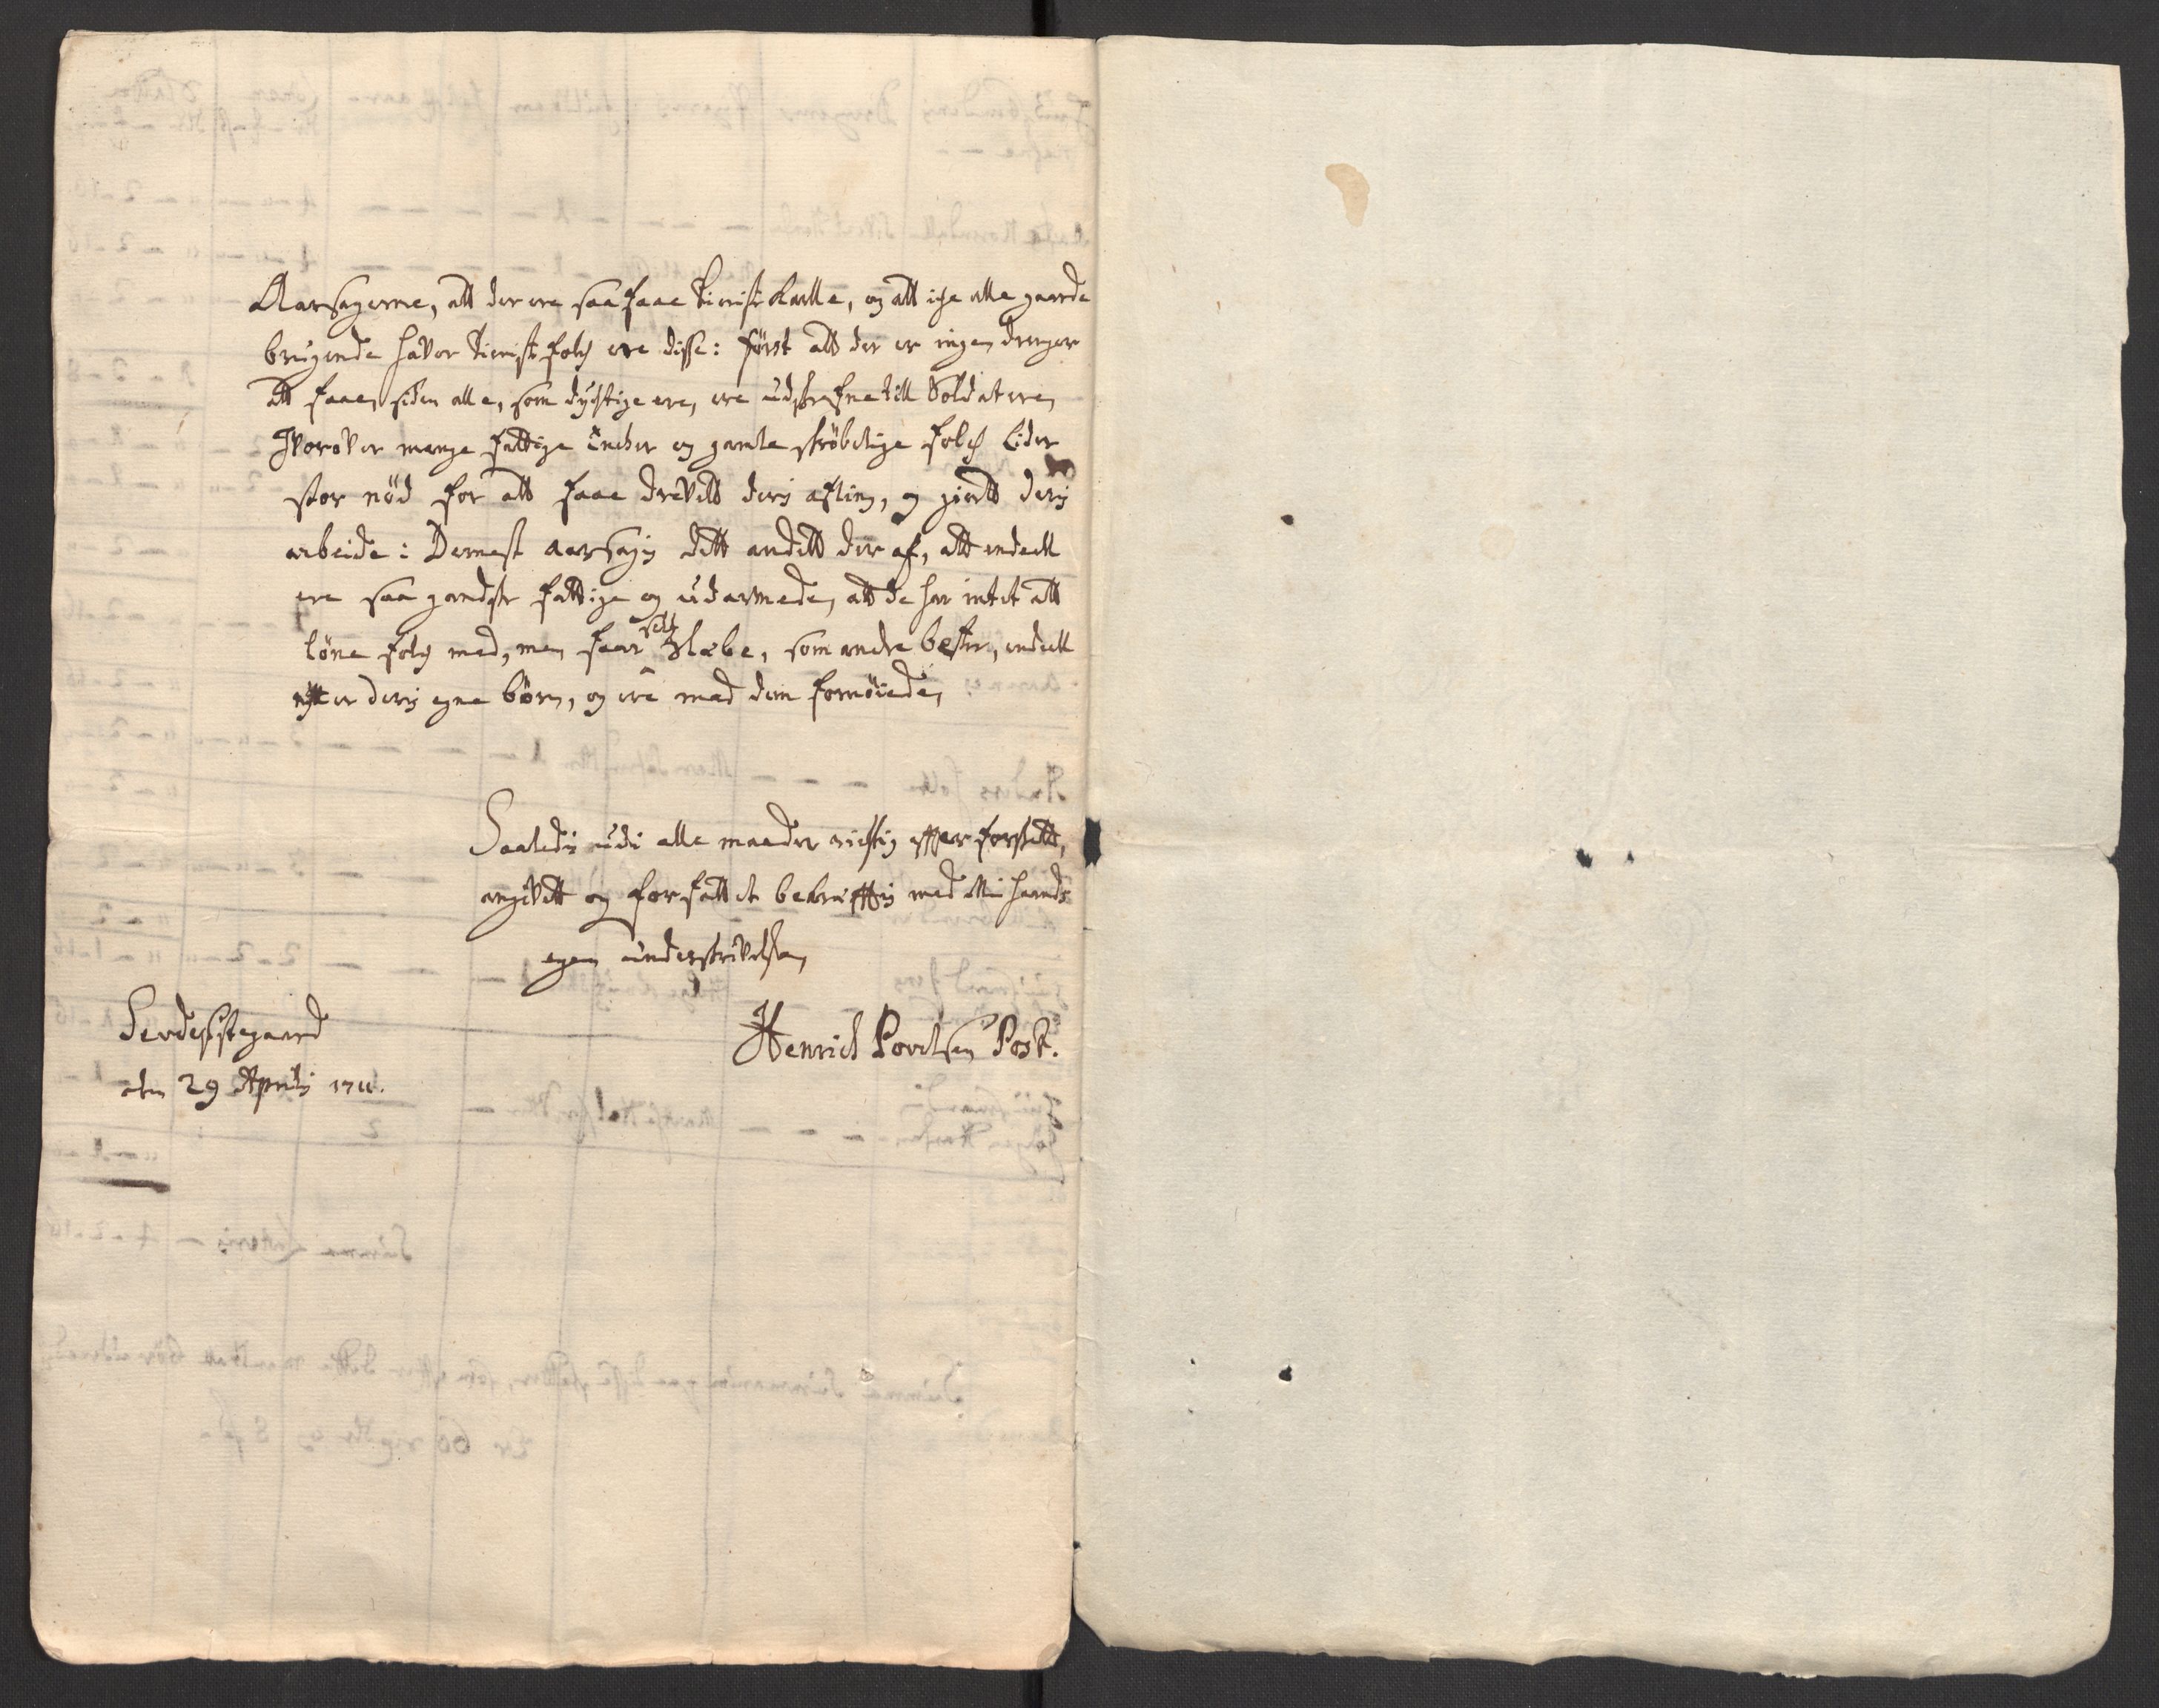 Aarsagerne, att der ere saa faae tienistkarlle, og att iche alle gaarde
brugende haver tienistfolch ere disse: først att der er ingen drenger
att faae, siden alle, som dychtige ere, ere udskrefne till Soldatere,
Hvorover mange fattige Encher og gamle skröbelige folch lider
stor nöd for att faae drevett deris afling, og giortt deris
arbeide: Dernest aarsagis dett andett der af, att endeell
ere saa gandske fattige og udarmede, att de har intet att
löne folch med, men faar selv slæbe, som andre bester, endeell
nytter deris egne börn, og ere med dem fornöiede,
Saaledis udi alle maader richtig efter forstett,
angivett og forfattet bekræfftis med min haands
egen underskrivelse,
Henrich Povelsen Post.
Leverdesstegaard
den 29 Aprilis 1711.